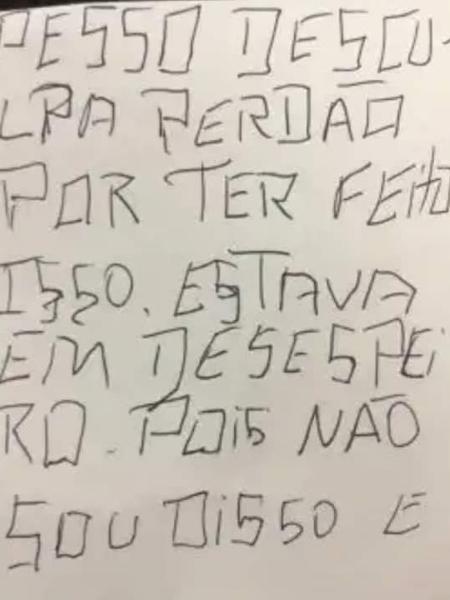 PESSO DESCU-
LPA PERDÃO
POR TER FEito
ISSO. ESTAVA
EM DESESPEi
RO. POiS NÃO
SOU DiSSO E